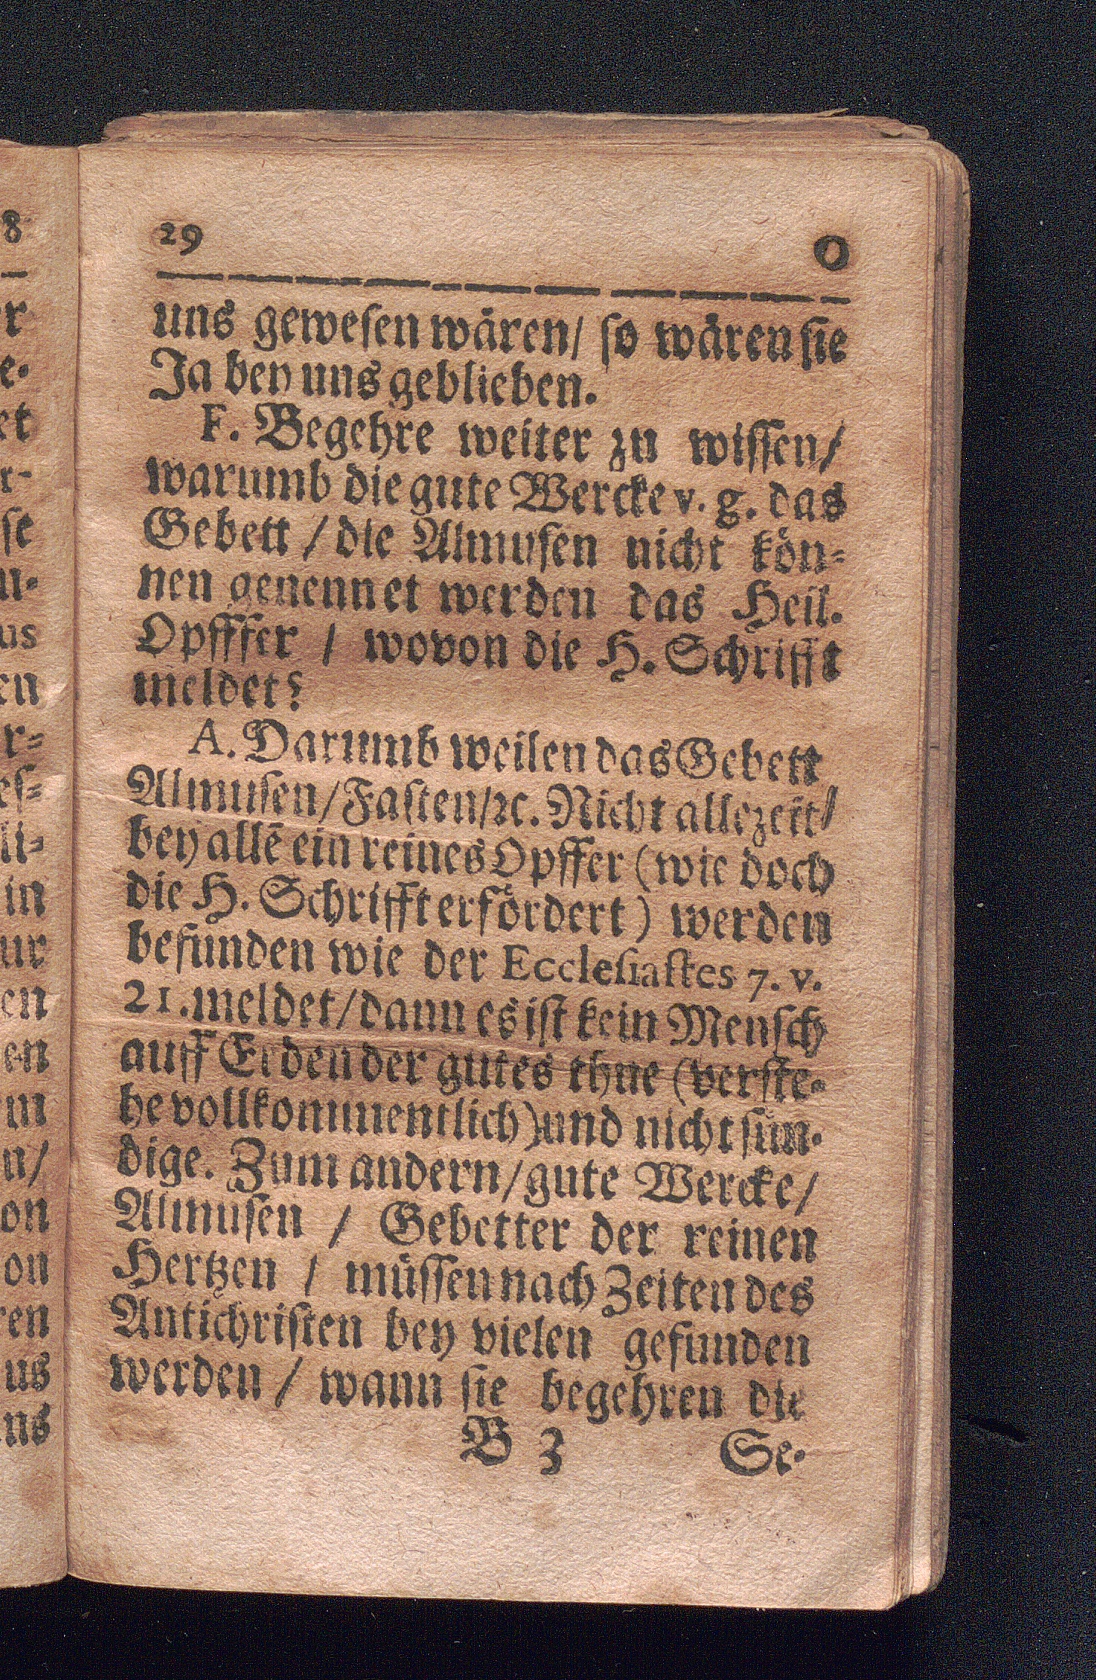 29 O
uns gewesen wären/ so wären sie
Ja bey uns geblieben.
F. Begehre weiter zu wissen/
warumb die gute Wercke v. g. das
Gebett / die Almusen nicht kön-
nen genennet werden das Heil.
Opffer / wovon die H. Schrifft
meldet?
A. Darumb weilen das Gebett
Almusen/Fasten/ꝛc. Nicht allezeit/
bey allē ein reines Opffer (wie doch
die H. Schrifft erfördert) werden
befunden wie der Ecclesiastes 7. v.
21. meldet/dann es ist kein Mensch
auff Erden der gutes thue (verste-
he vollkommentlich) und nicht sün-
dige. Zum andern/gute Wercke/
Almusen / Gebetter der reinen
Hertzen / müssen nach Zeiten des
Antichristen bey vielen gefunden
werden / wann sie begehren die
B 3 Se-